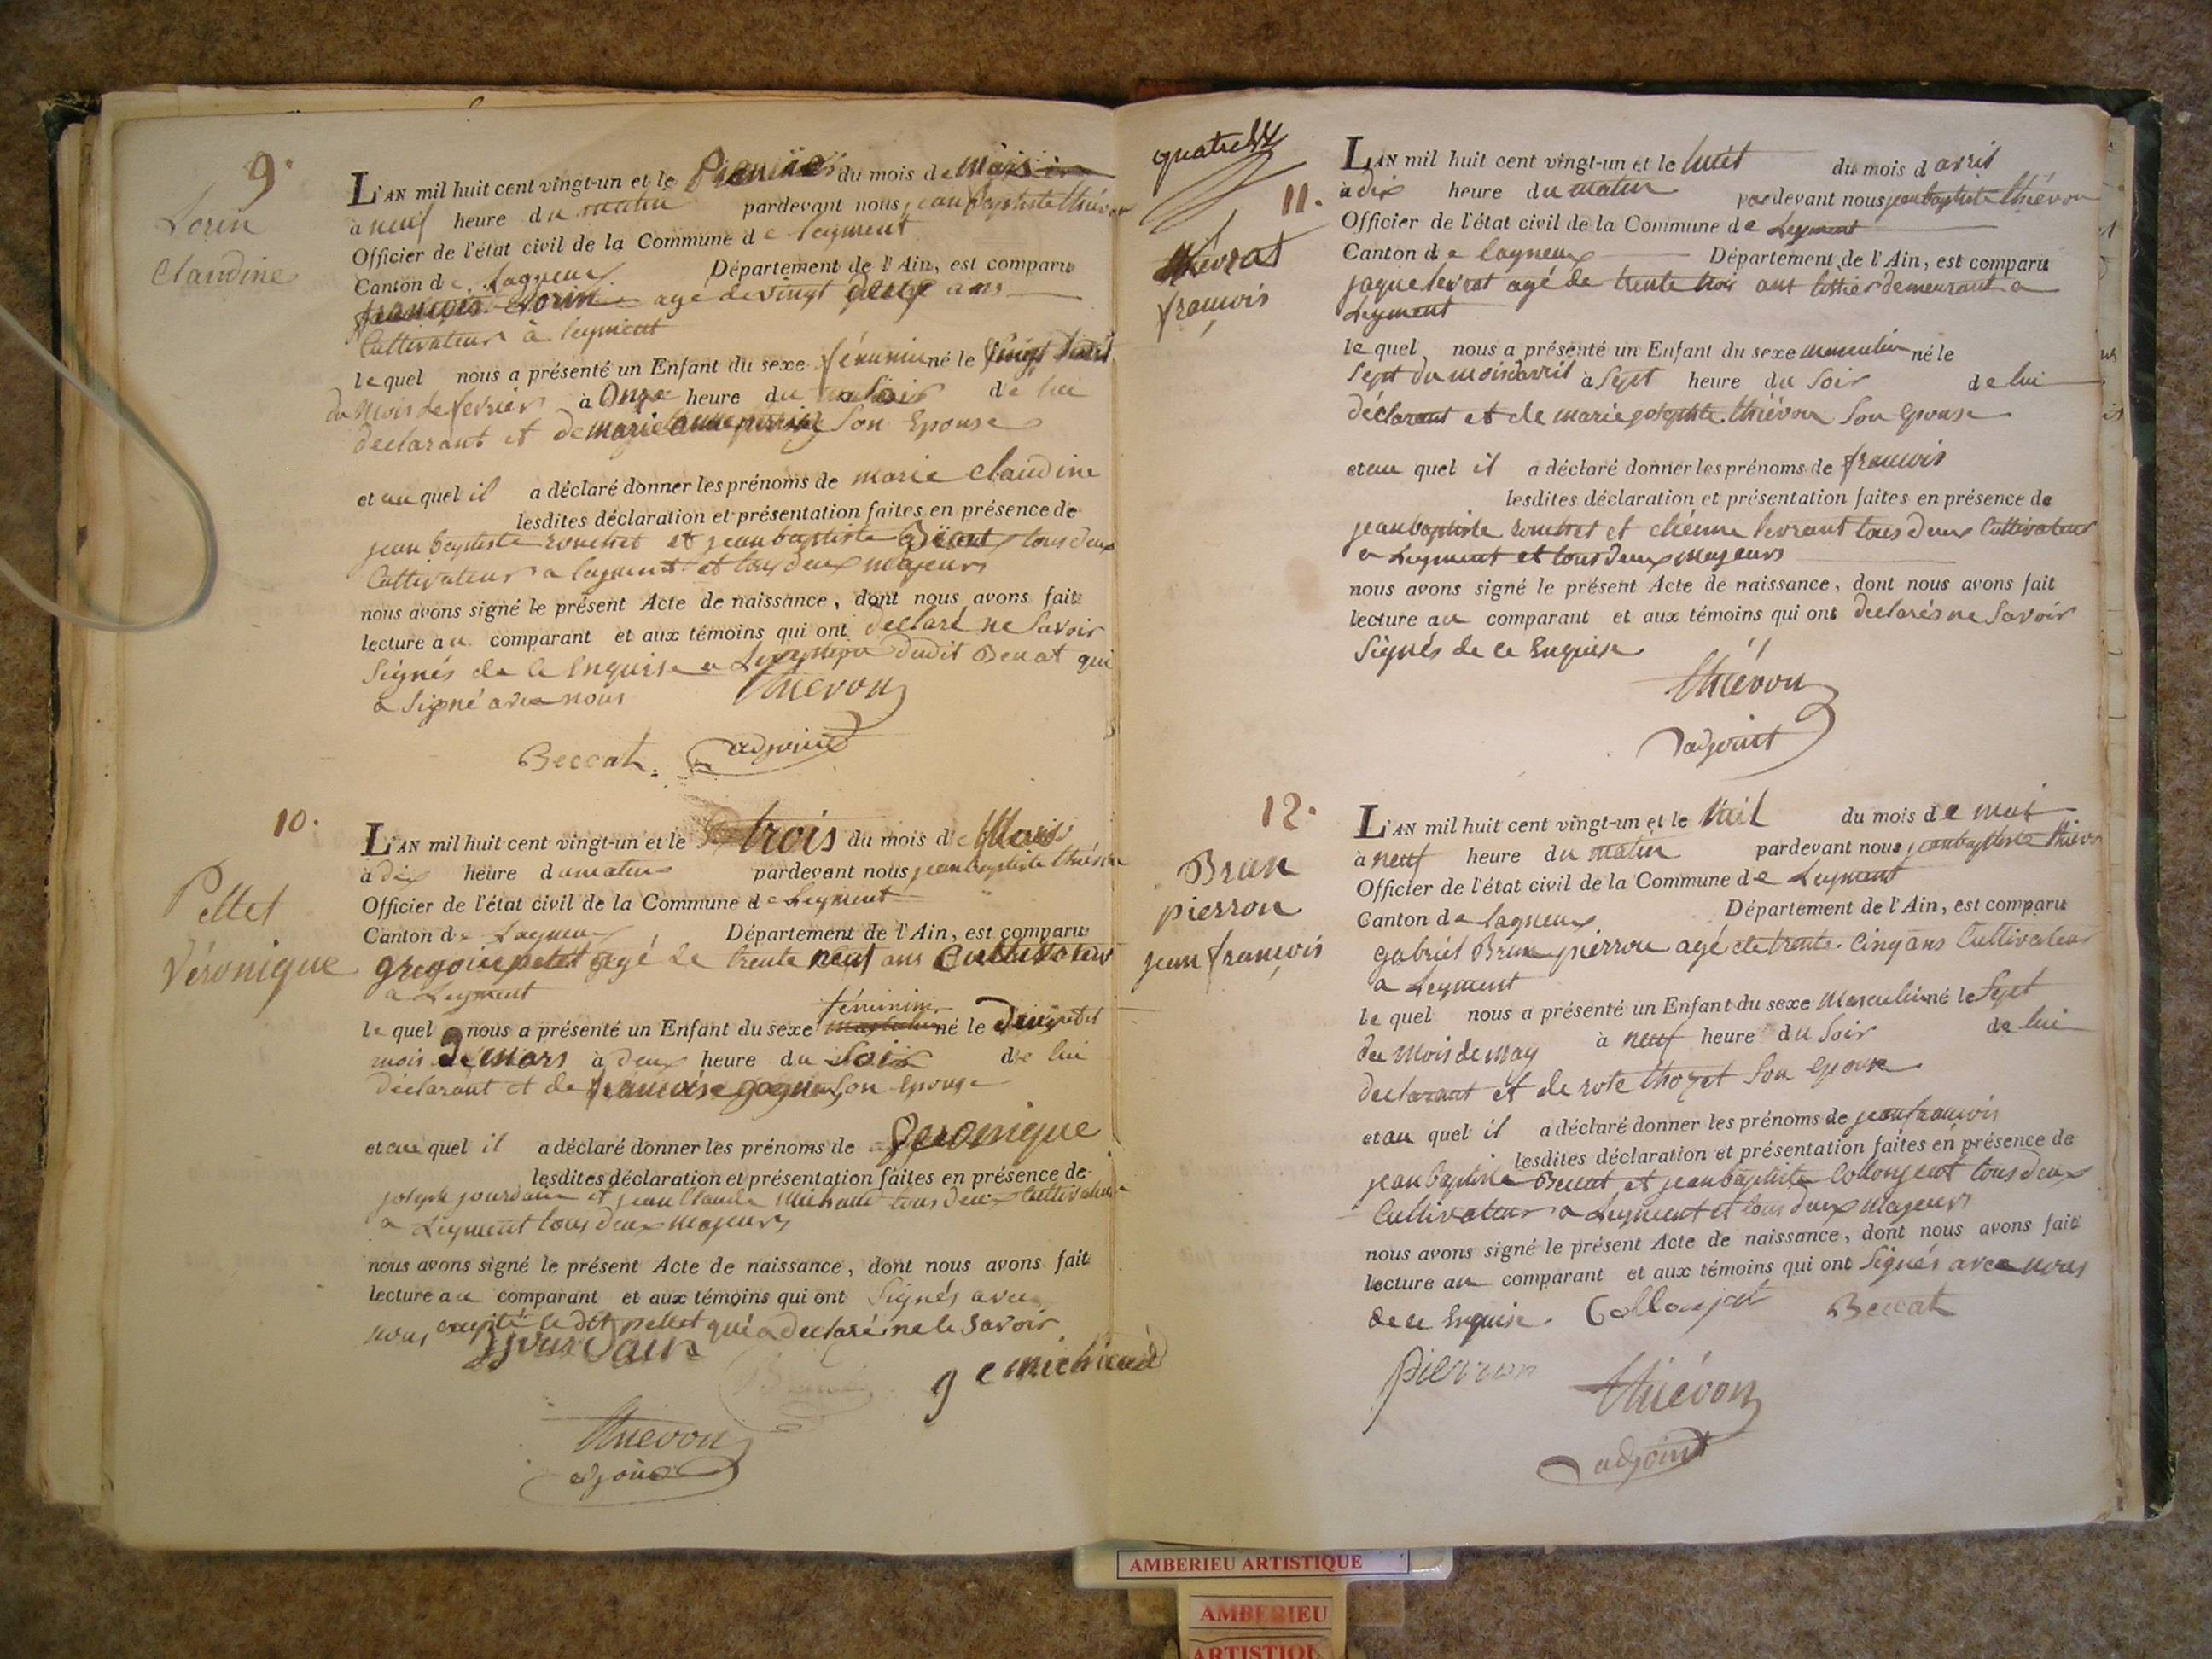 9.
Lorin
Claudine
L'AN mil huit cent vingt-un et le Premier du mois de mars
à neuf heure du matin pardevant nous jean baptiste thiévon
Officier de l'état civil de la Commune de leyment
Canton de Lagneux Département de l'Ain, est comparu
françois Lorin agé de vingt deux ans
Cultivateur à leyment
le quel nous a présenté un Enfant du sexe féminin né le vingt huit
du mois de fevrier à Onze heure du soir de lui
declarant et de marie anne perrin Son Epouse
et au quel il a déclaré donner les prénoms de marie Claudine
lesdites déclaration et présentation faites en présence de
jean baptiste rouchet et jean baptiste tous deux
Cultivateur a leyment et tous deux majeurs
nous avons signé le présent Acte de naissance, dont nous avons fait
lecture au comparant et aux témoins qui ont declaré ne Savoir
Signés de ce Enquise a dudit Becat qui
a Signé avec nous thiévon
Beccat adjoint
10.
Pellet
Véronique
L'AN mil huit cent vingt-un et le trois du mois de Mars
à dix heure du matin pardevant nous jean baptiste thiévon
Officier de l'état civil de la Commune de Leyment
Canton de Lagneux Département de l'Ain, est comparu
gregoire pelet agé de trente neuf ans Cultivateur
a Leyment
féminin
le quel nous a présenté un Enfant du sexe né le deux
mois de mars à deux heure du Soir de lui
déclarant et de françoise Son Epouse
et au quel il a déclaré donner les prénoms de Veronique
lesdites déclaration et présentation faites en présence de
joseph jourdain et jean Claude Michaud tous deux Cultivateur
a Leyment tous deux majeurs
nous avons signé le présent Acte de naissance, dont nous avons fait
lecture au comparant et aux témoins qui ont Signés avec
nous excepté le dit pellet qui a declaré ne le Savoir
jourdain
g c michaud
thiévon
adjoint
quatre
11.
thévrat
françois
L'AN mil huit cent vingt-un et le huit du mois d avril
à dix heure du matin pardevant nous jean baptiste thiévon
Officier de l'état civil de la Commune de Leyment
Canton de lagneux Département de l'Ain, est comparu
jaque levrat agé de trente trois ans tissier demeurant a
Leyment
le quel nous a présenté un Enfant du sexe masculin né le
Sept du mois davril à Sept heure du Soir de lui
déclarant et de marie josephte thiévon Son epouse
et au quel il a déclaré donner les prénoms de françois
lesdites déclaration et présentation faites en présence de
jean baptiste rouchet et etienne levrant tous deux Cultivateur
a Leyment et tous deux majeurs
nous avons signé le présent Acte de naissance, dont nous avons fait
lecture au comparant et aux témoins qui ont declarés ne Savoir
Signés de ce Enquise
thiévon
adjoint
12.
Brun
pierron
jean françois
L'AN mil huit cent vingt-un et le huit du mois de mai
à neuf heure du matin pardevant nous jean baptiste thiévon
Officier de l'état civil de la Commune de Leyment
Canton de lagneux Département de l'Ain, est comparu
gabriel Brun pierron agé de trente Cinq ans Cultivateur
a Leyment
le quel nous a présenté un Enfant du sexe Masculin né le Sept
du Mois de may à neuf heure du Soir de lui
declarant et de rose thozet Son epouse
et au quel il a déclaré donner les prénoms de jean francois
lesdites déclaration et présentation faites en présence de
jean baptiste Beccat et jean baptiste Collonjeat tous deux
Cultivateur a Leyment et tous deux majeurs
nous avons signé le présent Acte de naissance, dont nous avons fait
lecture au comparant et aux témoins qui ont Signés avec nous
de ce Enquise. Collonjat Beccat
pierron
thiévon
adjoint
AMBERIEU ARTISTIQUE
AMBERIEU
ARTISTIQU